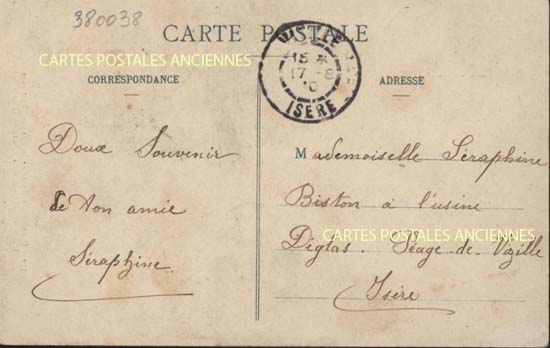 380038
CARTE POSTALE
CARTES POSTALES ANCIENNES
CORRESPONDANCE
ADRESSE
15 *
17 - 8
10
ISERE
Doux Souvenir
de ton amie
Séraphine.
Mademoiselle Séraphine
Biston à l'usine
CARTES POSTALES ANCIENNES
Péage-de-Vizille
Isère